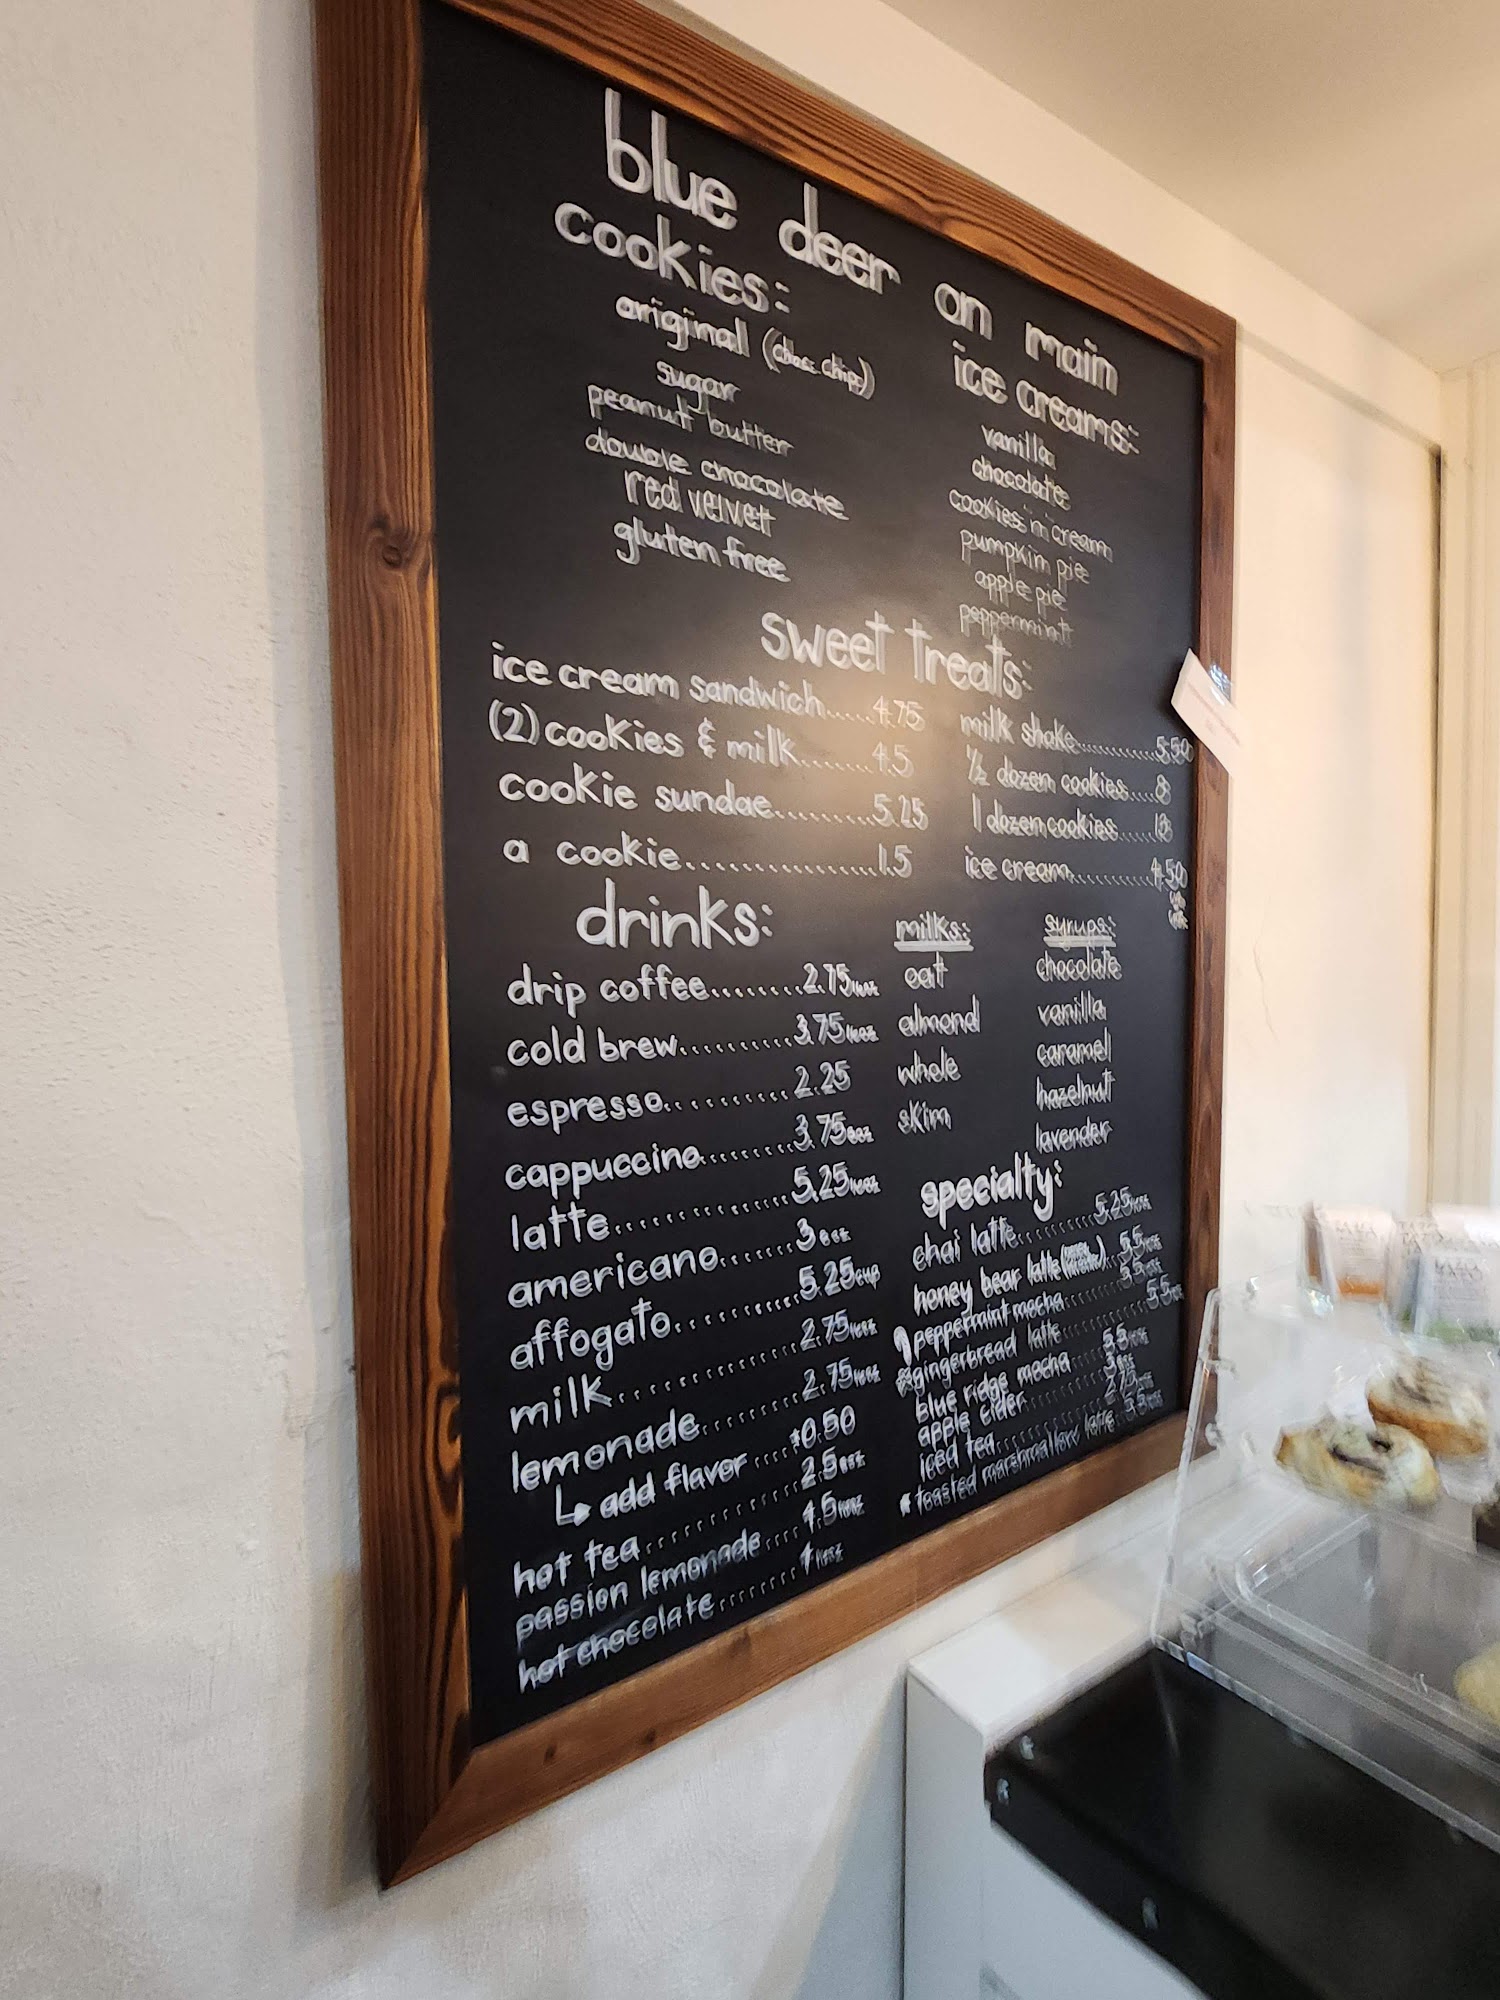 blue deer on main
cookies:
original (choc. chip)
sugar
peanut butter
double chocolate
red velvet
gluten free
ice creams:
vanilla
chocolate
cookies n cream
pumpkin pie
apple pie
peppermint
sweet treats:
ice cream sandwich.....4.75
(2) cookies & milk.......4.5
cookie sundae.........5.25
a cookie.................1.5
milk shake..........5.50
1/2 dozen cookies.....8
1 dozen cookies......
ice cream..........4.50
drinks:
drip coffee........2.75 16oz
cold brew..........3.75 16oz
espresso..........2.25
cappuccino.........3.75 8oz
latte..............5.25 16oz
americano.......3 8oz
affogato..........5.25 cup
milk..............2.75 16oz
lemonade.........2.75 16oz
↳ add flavor....+0.50
hot tea...........2.5 8oz
passion lemonade....4.5 16oz
hot chocolate........4 16oz
milks:
oat
almond
whole
skim
syrups:
chocolate
vanilla
caramel
hazelnut
lavender
specialty:
chai latte..........5.25 16oz
honey bear latte 5.5
peppermint mocha 5.5
gingerbread latte 5.5
blue ridge mocha 5.5
apple cider 3 8oz
iced tea 2.75
toasted marshmallow latte 5.5